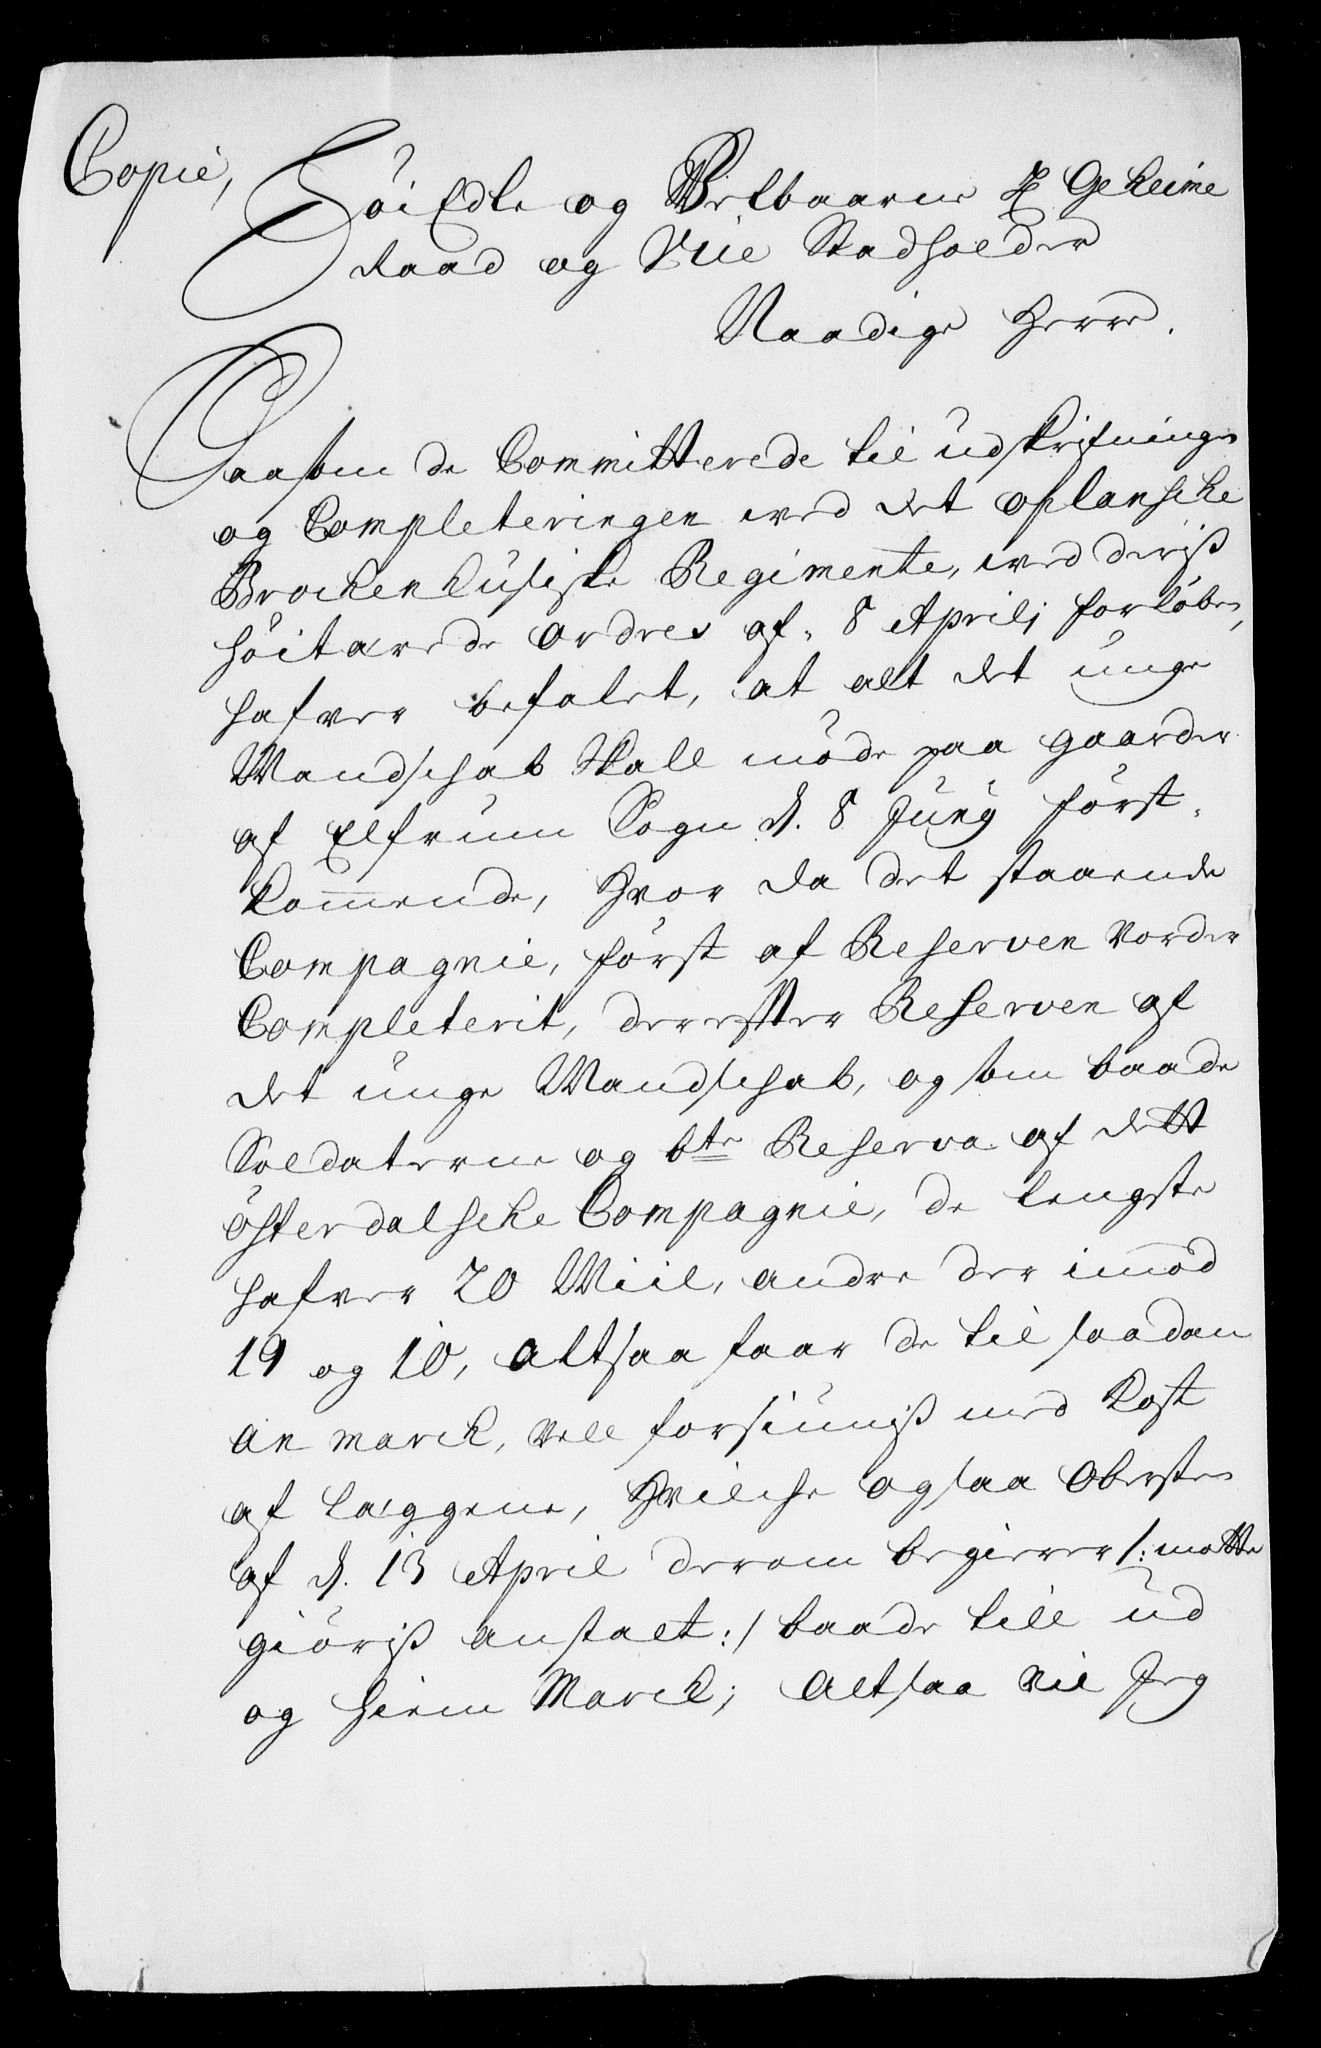 Copie,
Höi Edle og Velbaarne H Geheime
Raad og Vice Stadholder
Naadige Herre.
Saasom de Committerede til udskrifnings
og Completeringen ved det oplansche
Brockenhusiske Regimente, ved deris
höitærede ordres af 8 Aprili forløben,
hafver befalet, at alt det unge
Mandschab skall möde paa gaarder
af Elfrum Sogn d. 8 Junÿ först-
kommende, hvor da det staaende
Compagnie, först af Reserven vorder
Completerit, derefter Reserven af
det unge Mandschab, og som baade
Soldaterne og bte Reserve af dett
österdalsche Compagnie, de lengste
hafver 20 Miil, andre der imod
19 og 10, altsaa faar de til saadan
an march, vell forsiunis med kost
af læggene, hvilche ogsaa Obersten
af d. 13 April derom begierer /: motte
giöris anstalt :/ baade till ud
og hiem March; altsaa vil Jeg